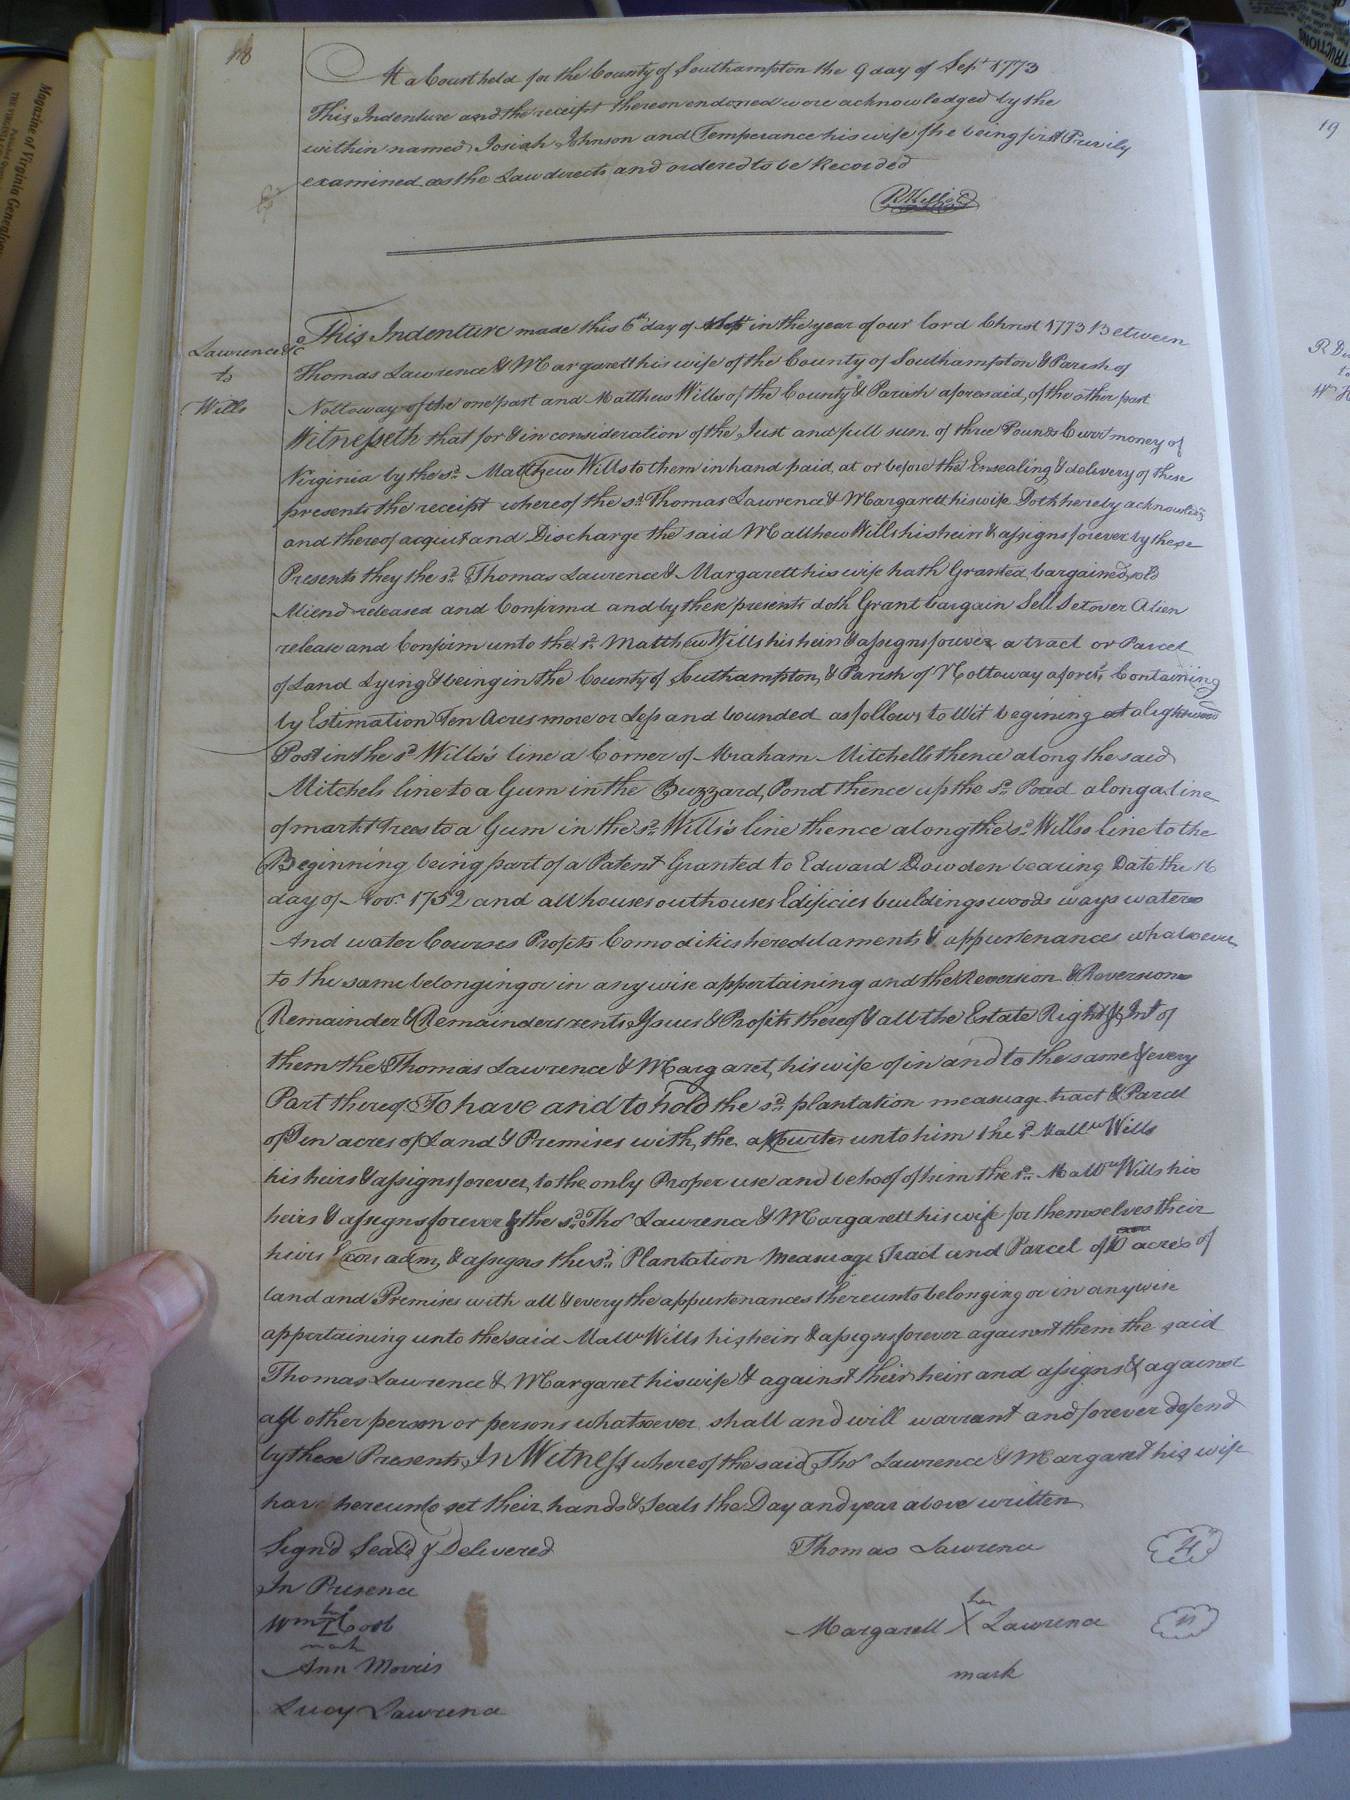 18
At a Court held for the County of Southampton the 9 day of Sept 1773
This Indenture and the receipt thereon endorsed were acknowledged by the
within named Josiah Johnson and Temperance his wife she being first Privily
examined as the Law directs and ordered to be Recorded
Lawrence &c
to
Wills
This Indenture made this 6th day of Sept in the year of our lord Christ 1773 Between
Thomas Lawrence & Margarett his wife of the County of Southampton & Parish of
Nottoway of the one part and Matthew Wills of the County & Parish aforesaid, of the other part
Witnesseth that for & in consideration of the Just and full sum of three Pounds Currt money of
Virginia by the sd. Matthew Wills to them in hand paid, at or before the Ensealing & delivery of these
presents the receipt whereof the sd. Thomas Lawrence & Margarett his wife Doth hereby acknowledg
and thereof acquit and Discharge the said Matthew Wills his heirs & assigns forever by these
Presents they the sd. Thomas Lawrence & Margarett his wife hath Granted bargained, sold
Aliend released and Confirmd and by these presents doth Grant bargain Sell Setover Alien
release and Confirm unto the sd. Matthew Wills his heirs & assigns forever a tract or Parcel
of Land Lying & being in the County of Southampton, & Parish of Nottoway aforesd. Containing
by Estimation Ten Acres more or Less and bounded as follows to Wit begining at a lightwood
Post in the sd Wills's line a Corner of Abraham Mitchells thence along the said
Mitchels line to a Gum in the Buzzard Pond thence up the sd. Pond along a line
of markt Trees to a Gum in the sd. Wills's line thence along the sd. Wills line to the
Beginning being part of a Patent Granted to Edward Dowden bearing Date the 16
day of Novr. 1752 and all houses outhouses Edificies buildings woods ways waters
And water Courses Profits Comodities heredilaments & appurtenances whatsoever
to the same belonging or in any wise appertaining and the Reversion & Reversions
Remainder & Remainders rents Issues & Profits thereof & all the Estate Right & Int of
them the Thomas Lawrence & Margaret, his wife of in and to the same & every
Part thereof To have and to hold the sd. plantation measuage tract & Parcel
of Ten acres of Land & Premises with, the appurts unto him the sd. Mattw Wills
his heirs & assigns forever, to the only Proper use and behoof of him the sd. Mattw Wills his
heirs & assigns forever & the sd. Thos Lawrence & Margarett his wife for themselves their
heirs Exors adm, & assigns the sd. Plantation Measuage Tract and Parcel of 10 acres of
land and Premises with all & every the appurtenances thereunto belonging or in anywise
appertaining unto the said Mattw Wills his heirs & assigns forever against them the said
Thomas Lawrence & Margaret his wife & against their heirs and assigns & against
all other person or persons whatsoever shall and will warrant and forever defend
by these Presents, In Witness whereof the said Thos Lawrence & Margaret his wife
have hereunto set their hands & Seals the Day and year above written
Sign'd Seal'd & Delivered
Thomas Lawrence
In Presence
her
Margarett X Lawrence
mark
his
mark
Ann Morris
Lucy Lawrence
19
Magazine of Virginia Genealogy